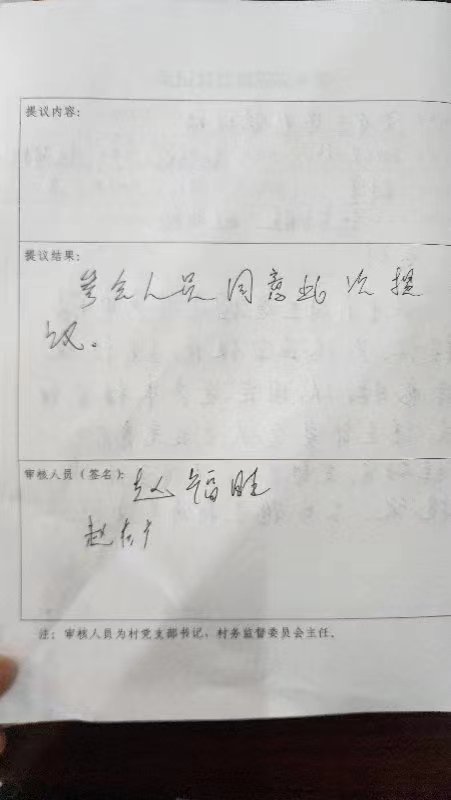 提议内容：
提议结果：
参会人员同意此次提
议。
审核人员（签名）： 赵福胜
赵
注：审核人员为村党支部书记，村务监督委员会主任。